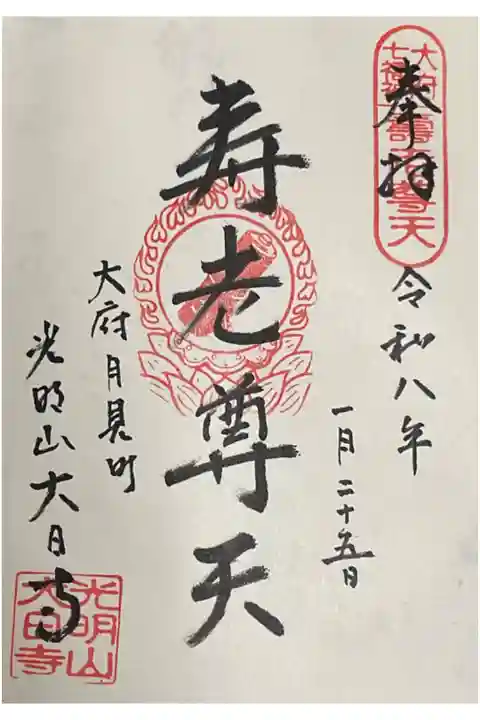 奉拝
大府七福神
壽老尊天
令和八年
一月二十五日
寿老尊天
大府月見町
光明山大日寺
光明山
大日寺